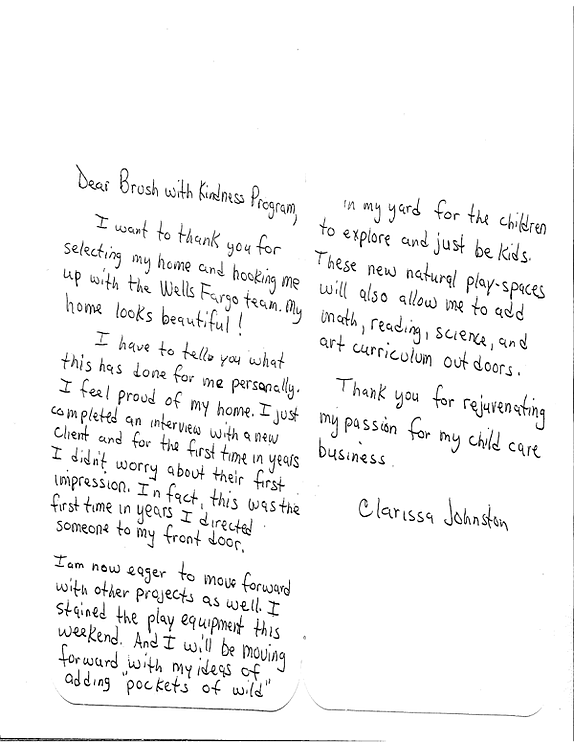 Dear Brush with Kindness Program,
I want to thank you for
selecting my home and hooking me
up with the Wells Fargo team. My
home looks beautiful!
I have to tell you what
this has done for me personally.
I feel proud of my home. I just
completed an interview with a new
client and for the first time in years
I didn't worry about their first
impression. In fact, this was the
first time in years I directed
someone to my front door.
I am now eager to move forward
with other projects as well. I
stained the play equipment this
weekend. And I will be moving
forward with my ideas of
adding "pockets of wild"
in my yard for the children
to explore and just be kids.
These new natural play-spaces
will also allow me to add
math, reading, science, and
art curriculum outdoors.
Thank you for rejuvenating
my passion for my child care
business.
Clarissa Johnston